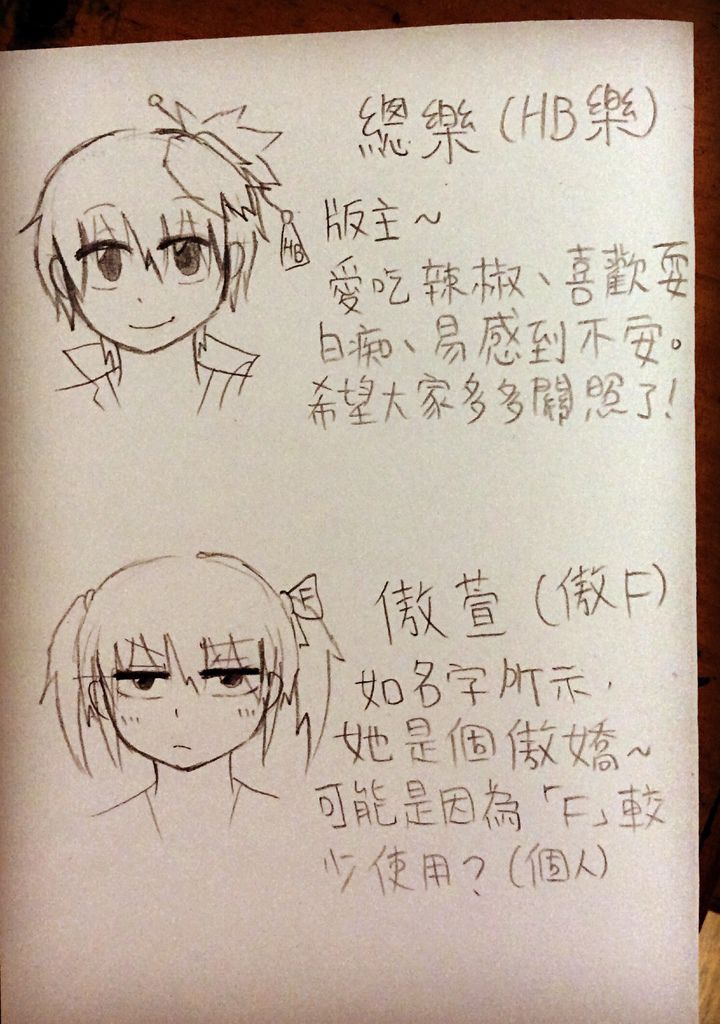 總樂(HB樂)
HB
版主~
愛吃辣椒、喜歡耍
白痴、易感到不安。
希望大家多多關照了!
F
傲萱(傲F)
如名字所示,
她是個傲嬌~
可能是因為「F」較
少使用?(個人)